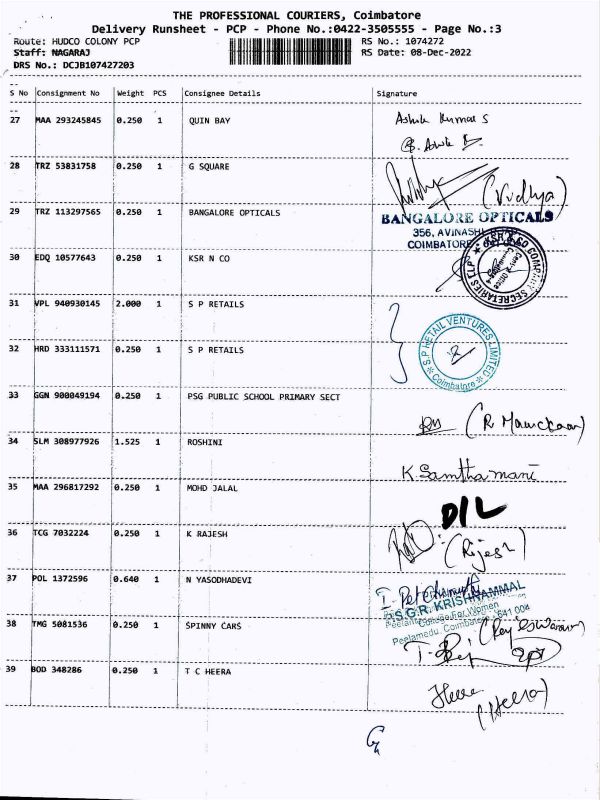 THE PROFESSIONAL COURIERS, Coimbatore
Delivery Runsheet - PCP - Phone No.:0422-3505555 - Page No.:3
Route: HUDCO COLONY PCP RS No.: 1074272
Staff: NAGARAJ RS Date: 08-Dec-2022
DRS No.: DCJB107427203
S No Consignment No Weight PCS Consignee Details Signature
27 MAA 293245845 0.250 1 QUIN BAY Ashok Kumar S
28 TRZ 53831758 0.250 1 G SQUARE (Vidhya)
29 TRZ 113297565 0.250 1 BANGALORE OPTICALS BANGALORE OPTICALS
356, AVINASHI ROAD
COIMBATORE
30 EDQ 10577643 0.250 1 KSR N CO KSR & CO COMPANY SECRETARIES LLP
31 VPL 940930145 2.000 1 S P RETAILS
32 HRD 333111571 0.250 1 S P RETAILS S.P RETAIL VENTURES LIMITED
Coimbatore
33 GGN 900049194 0.250 1 PSG PUBLIC SCHOOL PRIMARY SECT
34 SLM 308977926 1.525 1 ROSHINI K. Santhamani
35 MAA 296817292 0.250 1 MOHD JALAL D/L
36 TCG 7032224 0.250 1 K RAJESH (Rijesh)
37 POL 1372596 0.640 1 N YASODHADEVI
P.S.G.R. KRISHNAMMAL
College For Women
Peelamedu Coimbatore 641 004
38 TMG 5081536 0.250 1 SPINNY CARS
39 BOD 348286 0.250 1 T C HEERA Heera
(Heera)